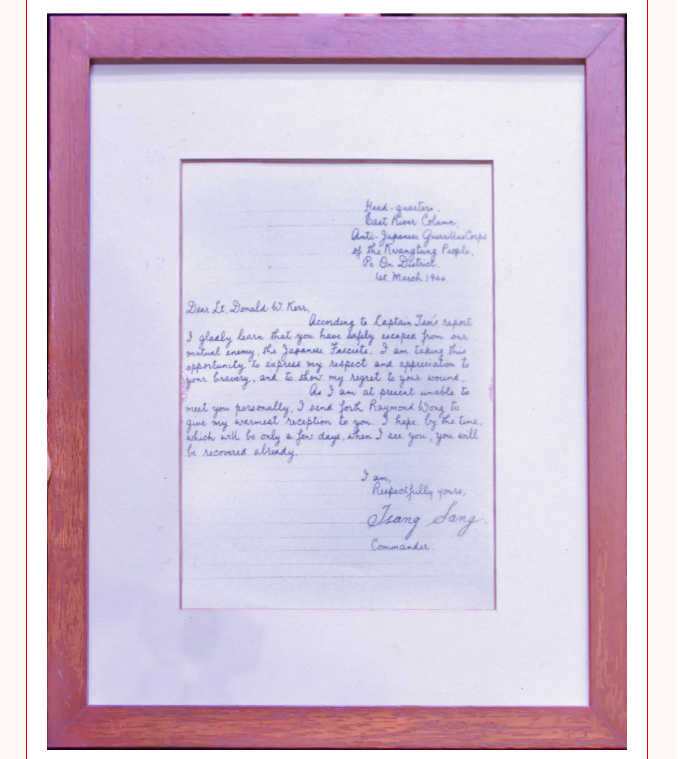 Head-quarters,
East River Column,
Anti-Japanese Guerrillas Corps
of the Kwangtung People,
Po On District.
1st. March 1944
Dear Lt. Donald W. Kerr,
According to Captain Tsoi's report
I gladly learn that you have safely escaped from our
mutual enemy, the Japanese Fascists. I am taking this
opportunity to express my respect and appreciation to
your bravery, and to show my regret to your wound.
As I am at present unable to
meet you personally, I send forth Raymond Wong to
give my warmest reception to you. I hope, by the time,
which will be only a few days, when I see you, you will
be recovered already.
I am,
Respectfully yours,
Tsang Sang.
Commander.